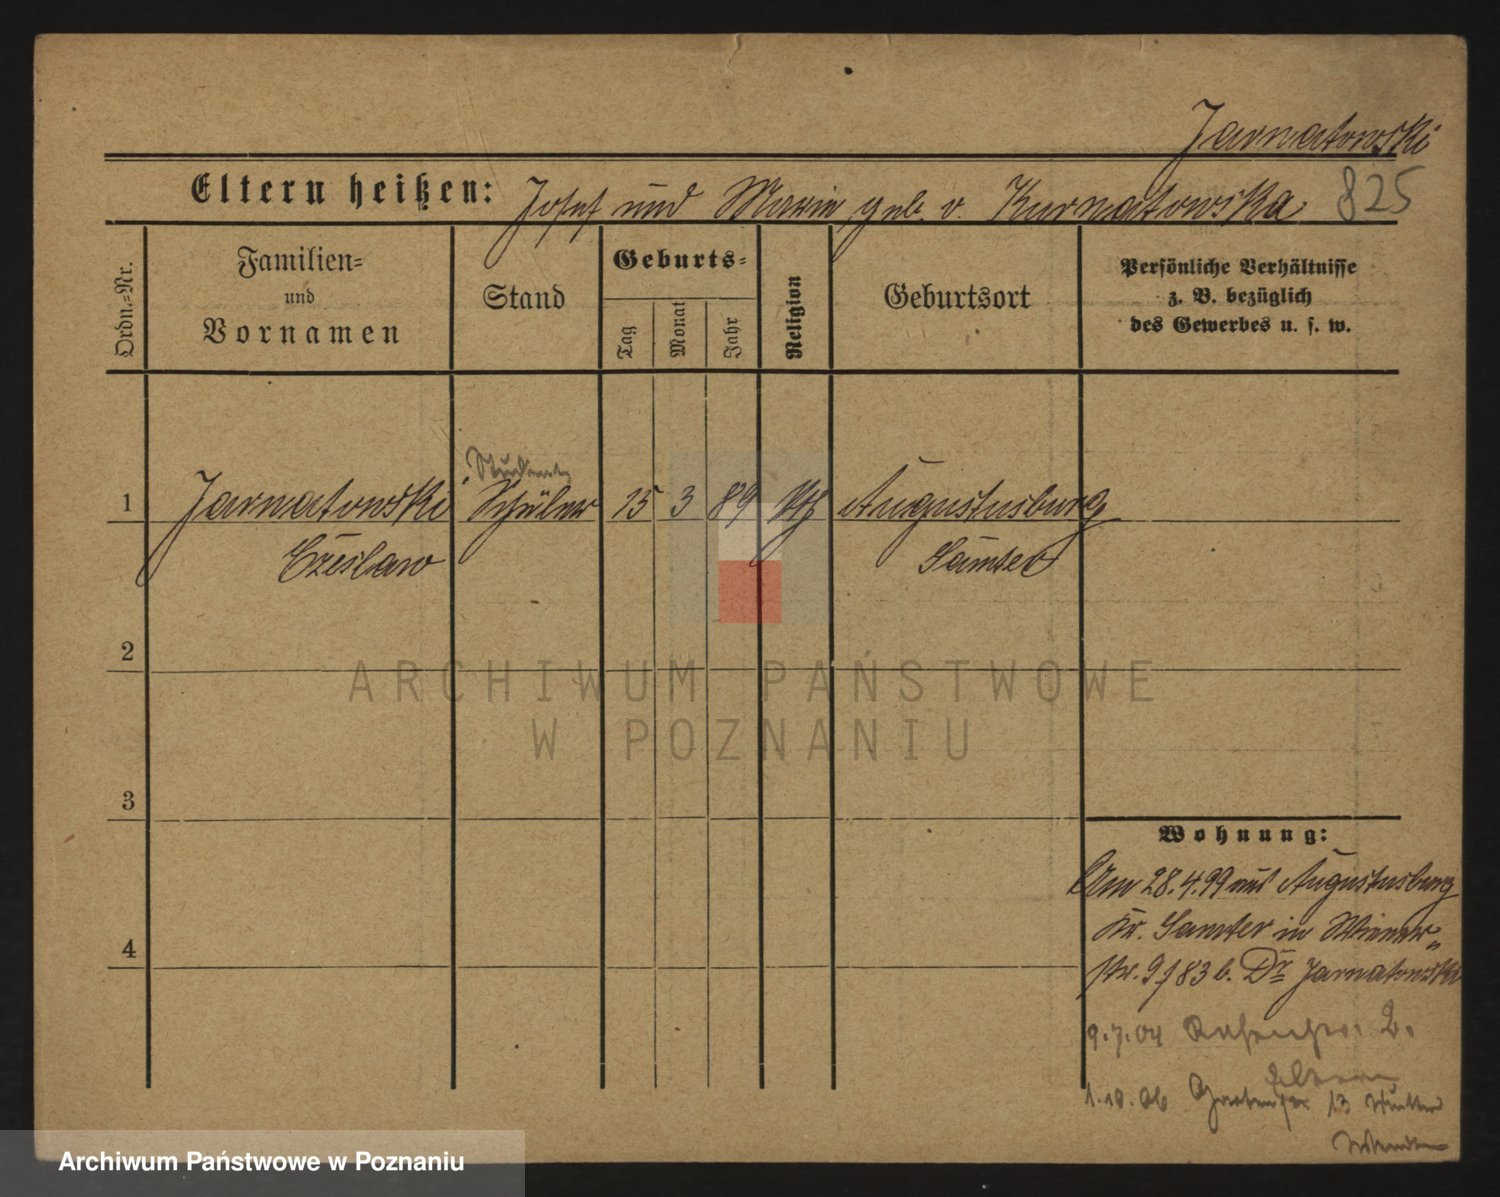 Jarnatowski
Eltern heißen: Josef und Marie geb. v. Kurnatowska 825
Ordn.-Nr.
Familien-
und
Vornamen
Stand
Geburts-
Tag
Monat
Jahr
Religion
Geburtsort
Persönliche Verhältnisse
z. B. bezüglich
des Gewerbes u. s. w.
Student
1 Jarnatowski Schüler 15 3 89 kth Augustusburg
Czeslaw Samter
2
ARCHIWUM PAŃSTWOWE
W POZNANIU
3
Wohnung:
Am 28.4.99 aus Augustusburg
Kr. Samter in Wiener-
str. 9 f 83 b. Dr Jarnatowski
4
9.7.04 2.
Eltern
1.10.06 Gartenstr 13 Mutter
Archiwum Państwowe w Poznaniu